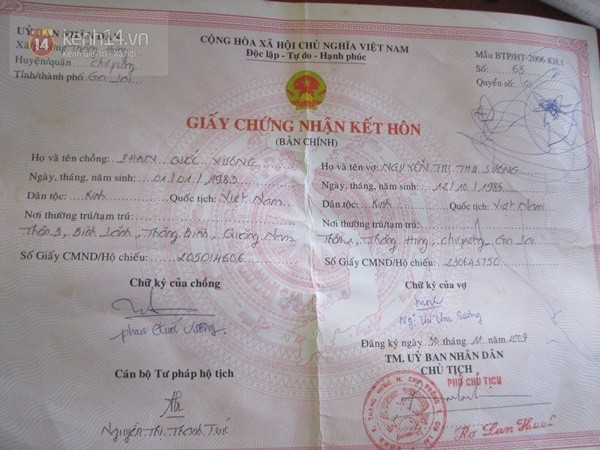 kenh14.vn
14
Kênh Giải Trí - Xã Hội
CỘNG HÒA XÃ HỘI CHỦ NGHĨA VIỆT NAM
Độc lập - Tự do - Hạnh phúc
Mẫu BTP/HT-2006-KH.1
Số: 65
Quyển số: 01
Huyện/quận: Chư prông
Tỉnh/thành phố: Gia Lai
GIẤY CHỨNG NHẬN KẾT HÔN
(BẢN CHÍNH)
Họ và tên chồng: PHAN QUỐC VƯƠNG
Ngày, tháng, năm sinh: 01/01/1983
Dân tộc: Kinh Quốc tịch: Việt Nam
Nơi thường trú/tạm trú:
Thôn 3, Bình Lãnh, Thăng Bình, Quảng Nam
Số Giấy CMND/Hộ chiếu: 205014606
Chữ ký của chồng
Phan Quốc Vương
Cán bộ Tư pháp hộ tịch
Nguyễn Thị Thanh
Họ và tên vợ: NGUYỄN THỊ THU SƯƠNG
Ngày, tháng, năm sinh: 12/10/1985
Dân tộc: Kinh Quốc tịch: Việt Nam
Nơi thường trú/tạm trú:
Thôn 1, Thăng Hưng, Chư prông Gia Lai
Số Giấy CMND/Hộ chiếu: 230643750
Chữ ký của vợ
Ng. Thị Thu Sương
Đăng ký ngày 30 tháng 11 năm 2009
TM. ỦY BAN NHÂN DÂN
CHỦ TỊCH
PHÓ CHỦ TỊCH
Lan Huệ